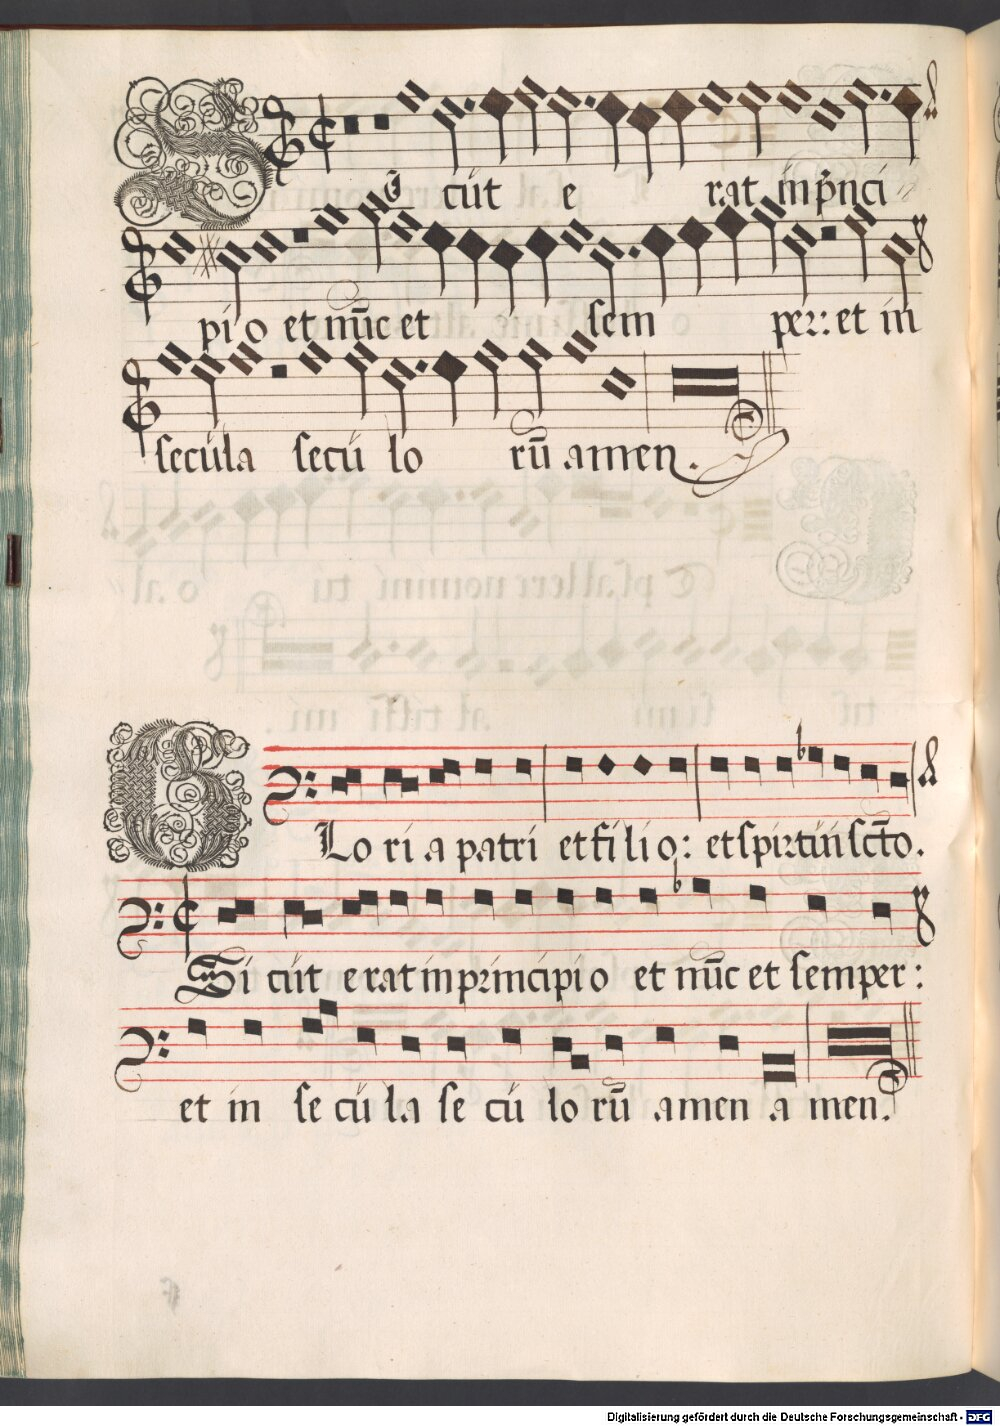 Sicut e rat in prīnci
pi o et nūc et sem per: et in
secula secu lo rū amen.
GLo ri a patri et fi li o: et spiritui scto.
Si cut erat in principio et nūc et semper:
et in se cu la se cu lo rū amen a men.
Digitalisierung gefördert durch die Deutsche Forschungsgemeinschaft - DFG